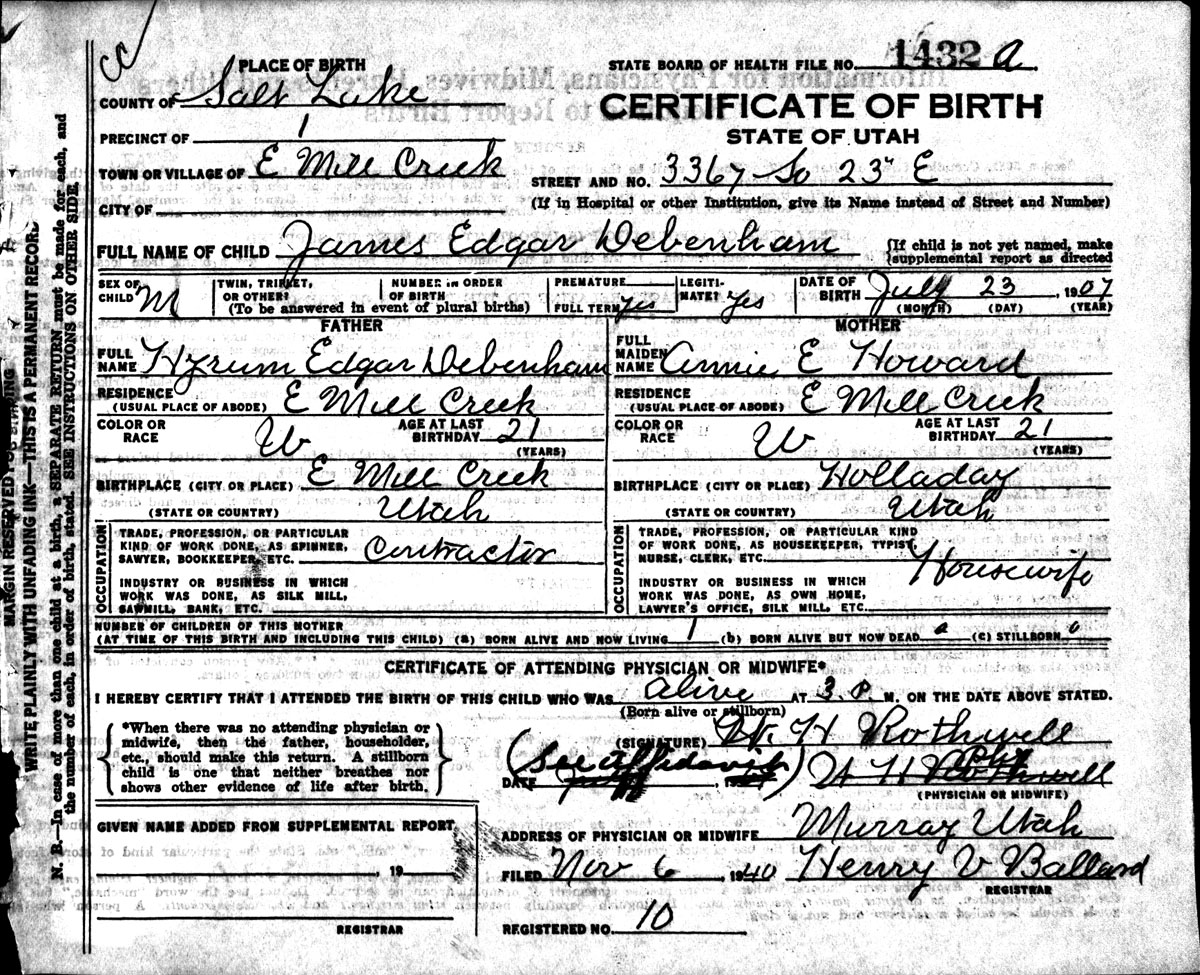 cc
PLACE OF BIRTH
STATE BOARD OF HEALTH FILE NO. 1432 a
COUNTY OF Salt Lake
CERTIFICATE OF BIRTH
PRECINCT OF 1
STATE OF UTAH
TOWN OR VILLAGE OF E Mill Creek
STREET AND NO. 3367 So 23" E
CITY OF
(If in Hospital or other Institution, give its Name instead of Street and Number)
FULL NAME OF CHILD James Edgar Debenham
{If child is not yet named, make
supplemental report as directed
SEX OF CHILD M
TWIN, TRIPLET, OR OTHER?
NUMBER in ORDER OF BIRTH
(To be answered in event of plural births)
PREMATURE
FULL TERM yes
LEGITIMATE? Yes
DATE OF BIRTH July 23, 1907
(MONTH) (DAY) (YEAR)
FATHER
FULL NAME Hyrum Edgar Debenham
RESIDENCE (USUAL PLACE OF ABODE) E Mill Creek
COLOR OR RACE W
AGE AT LAST BIRTHDAY 21 (YEARS)
BIRTHPLACE (CITY OR PLACE) E Mill Creek
(STATE OR COUNTRY) Utah
OCCUPATION
TRADE, PROFESSION, OR PARTICULAR
KIND OF WORK DONE, AS SPINNER,
SAWYER, BOOKKEEPER, ETC. Contractor
INDUSTRY OR BUSINESS IN WHICH
WORK WAS DONE, AS SILK MILL,
SAWMILL, BANK, ETC.
MOTHER
FULL MAIDEN NAME Annie E Howard
RESIDENCE (USUAL PLACE OF ABODE) E Mill Creek
COLOR OR RACE W
AGE AT LAST BIRTHDAY 21 (YEARS)
BIRTHPLACE (CITY OR PLACE) Holladay
(STATE OR COUNTRY) Utah
OCCUPATION
TRADE, PROFESSION, OR PARTICULAR KIND
OF WORK DONE, AS HOUSEKEEPER, TYPIST,
NURSE, CLERK, ETC. Housewife
INDUSTRY OR BUSINESS IN WHICH
WORK WAS DONE, AS OWN HOME,
LAWYER'S OFFICE, SILK MILL, ETC.
NUMBER OF CHILDREN OF THIS MOTHER
(AT TIME OF THIS BIRTH AND INCLUDING THIS CHILD) (a) BORN ALIVE AND NOW LIVING 1 (b) BORN ALIVE BUT NOW DEAD o (c) STILLBORN o
CERTIFICATE OF ATTENDING PHYSICIAN OR MIDWIFE*
I HEREBY CERTIFY THAT I ATTENDED THE BIRTH OF THIS CHILD WHO WAS alive AT 3 P M. ON THE DATE ABOVE STATED.
(Born alive or stillborn)
*When there was no attending physician or
midwife, then the father, householder,
etc., should make this return. A stillborn
child is one that neither breathes nor
shows other evidence of life after birth.
(SIGNATURE) H Rothwell
(See affidavit)
DATE
(PHYSICIAN OR MIDWIFE)
GIVEN NAME ADDED FROM SUPPLEMENTAL REPORT
, 19
REGISTRAR
ADDRESS OF PHYSICIAN OR MIDWIFE Murray Utah
FILED Nov 6 1940 Henry V Ballard
REGISTRAR
REGISTERED NO. 10
MARGIN RESERVED FOR BINDING
WRITE PLAINLY WITH UNFADING INK—THIS IS A PERMANENT RECORD
N. B.—In case of more than one child at a birth, a SEPARATE RETURN must be made for each, and
the number of each, in order of birth, stated. SEE INSTRUCTIONS ON OTHER SIDE.